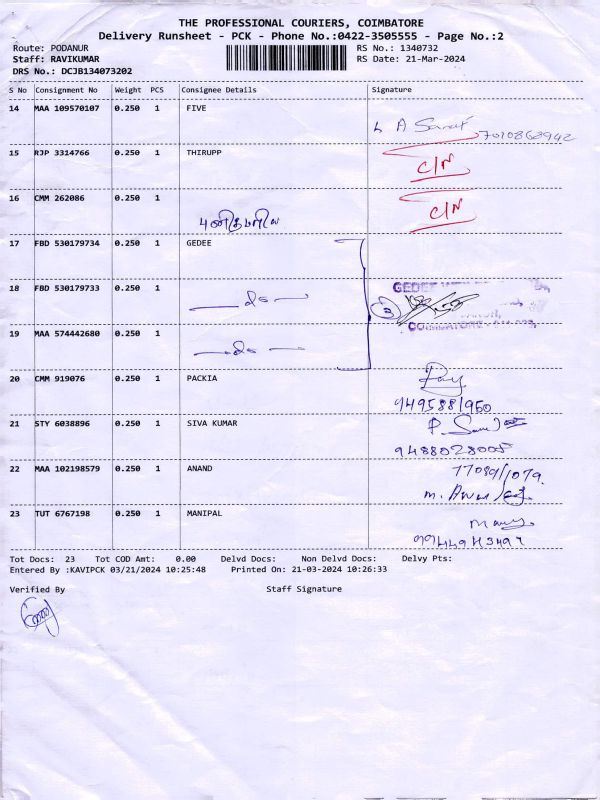 THE PROFESSIONAL COURIERS, COIMBATORE
Delivery Runsheet - PCK - Phone No.:0422-3505555 - Page No.:2
Route: PODANUR
RS No.: 1340732
Staff: RAVIKUMAR
RS Date: 21-Mar-2024
DRS No.: DCJB134073202
S No Consignment No Weight PCS Consignee Details Signature
14 MAA 109570107 0.250 1 FIVE
7010862942
15 RJP 3314766 0.250 1 THIRUPP
C/N
16 CMM 262086 0.250 1
C/N
17 FBD 530179734 0.250 1 GEDEE
18 FBD 530179733 0.250 1
do
19 MAA 574442680 0.250 1
do
20 CMM 919076 0.250 1 PACKIA
9495881960
21 STY 6038896 0.250 1 SIVA KUMAR
9488028005
22 MAA 102198579 0.250 1 ANAND
23 TUT 6767198 0.250 1 MANIPAL
Tot Docs: 23 Tot COD Amt: 0.00 Delvd Docs: Non Delvd Docs: Delvy Pts:
Entered By :KAVIPCK 03/21/2024 10:25:48 Printed On: 21-03-2024 10:26:33
Verified By Staff Signature